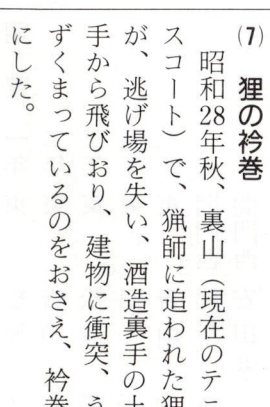 (7) 狸の衿巻
昭和28年秋、裏山（現在のテニ
スコート）で、猟師に追われた狸
が、逃げ場を失い、酒造裏手の土
手から飛びおり、建物に衝突、う
ずくまっているのをおさえ、衿巻
にした。